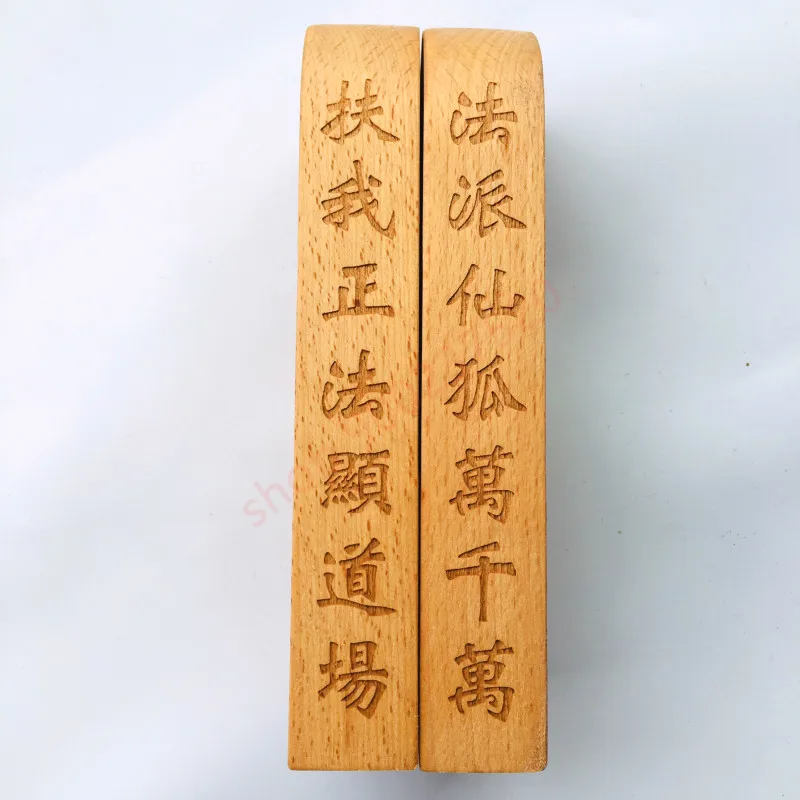 法派仙狐萬千萬
扶我正法顯道場